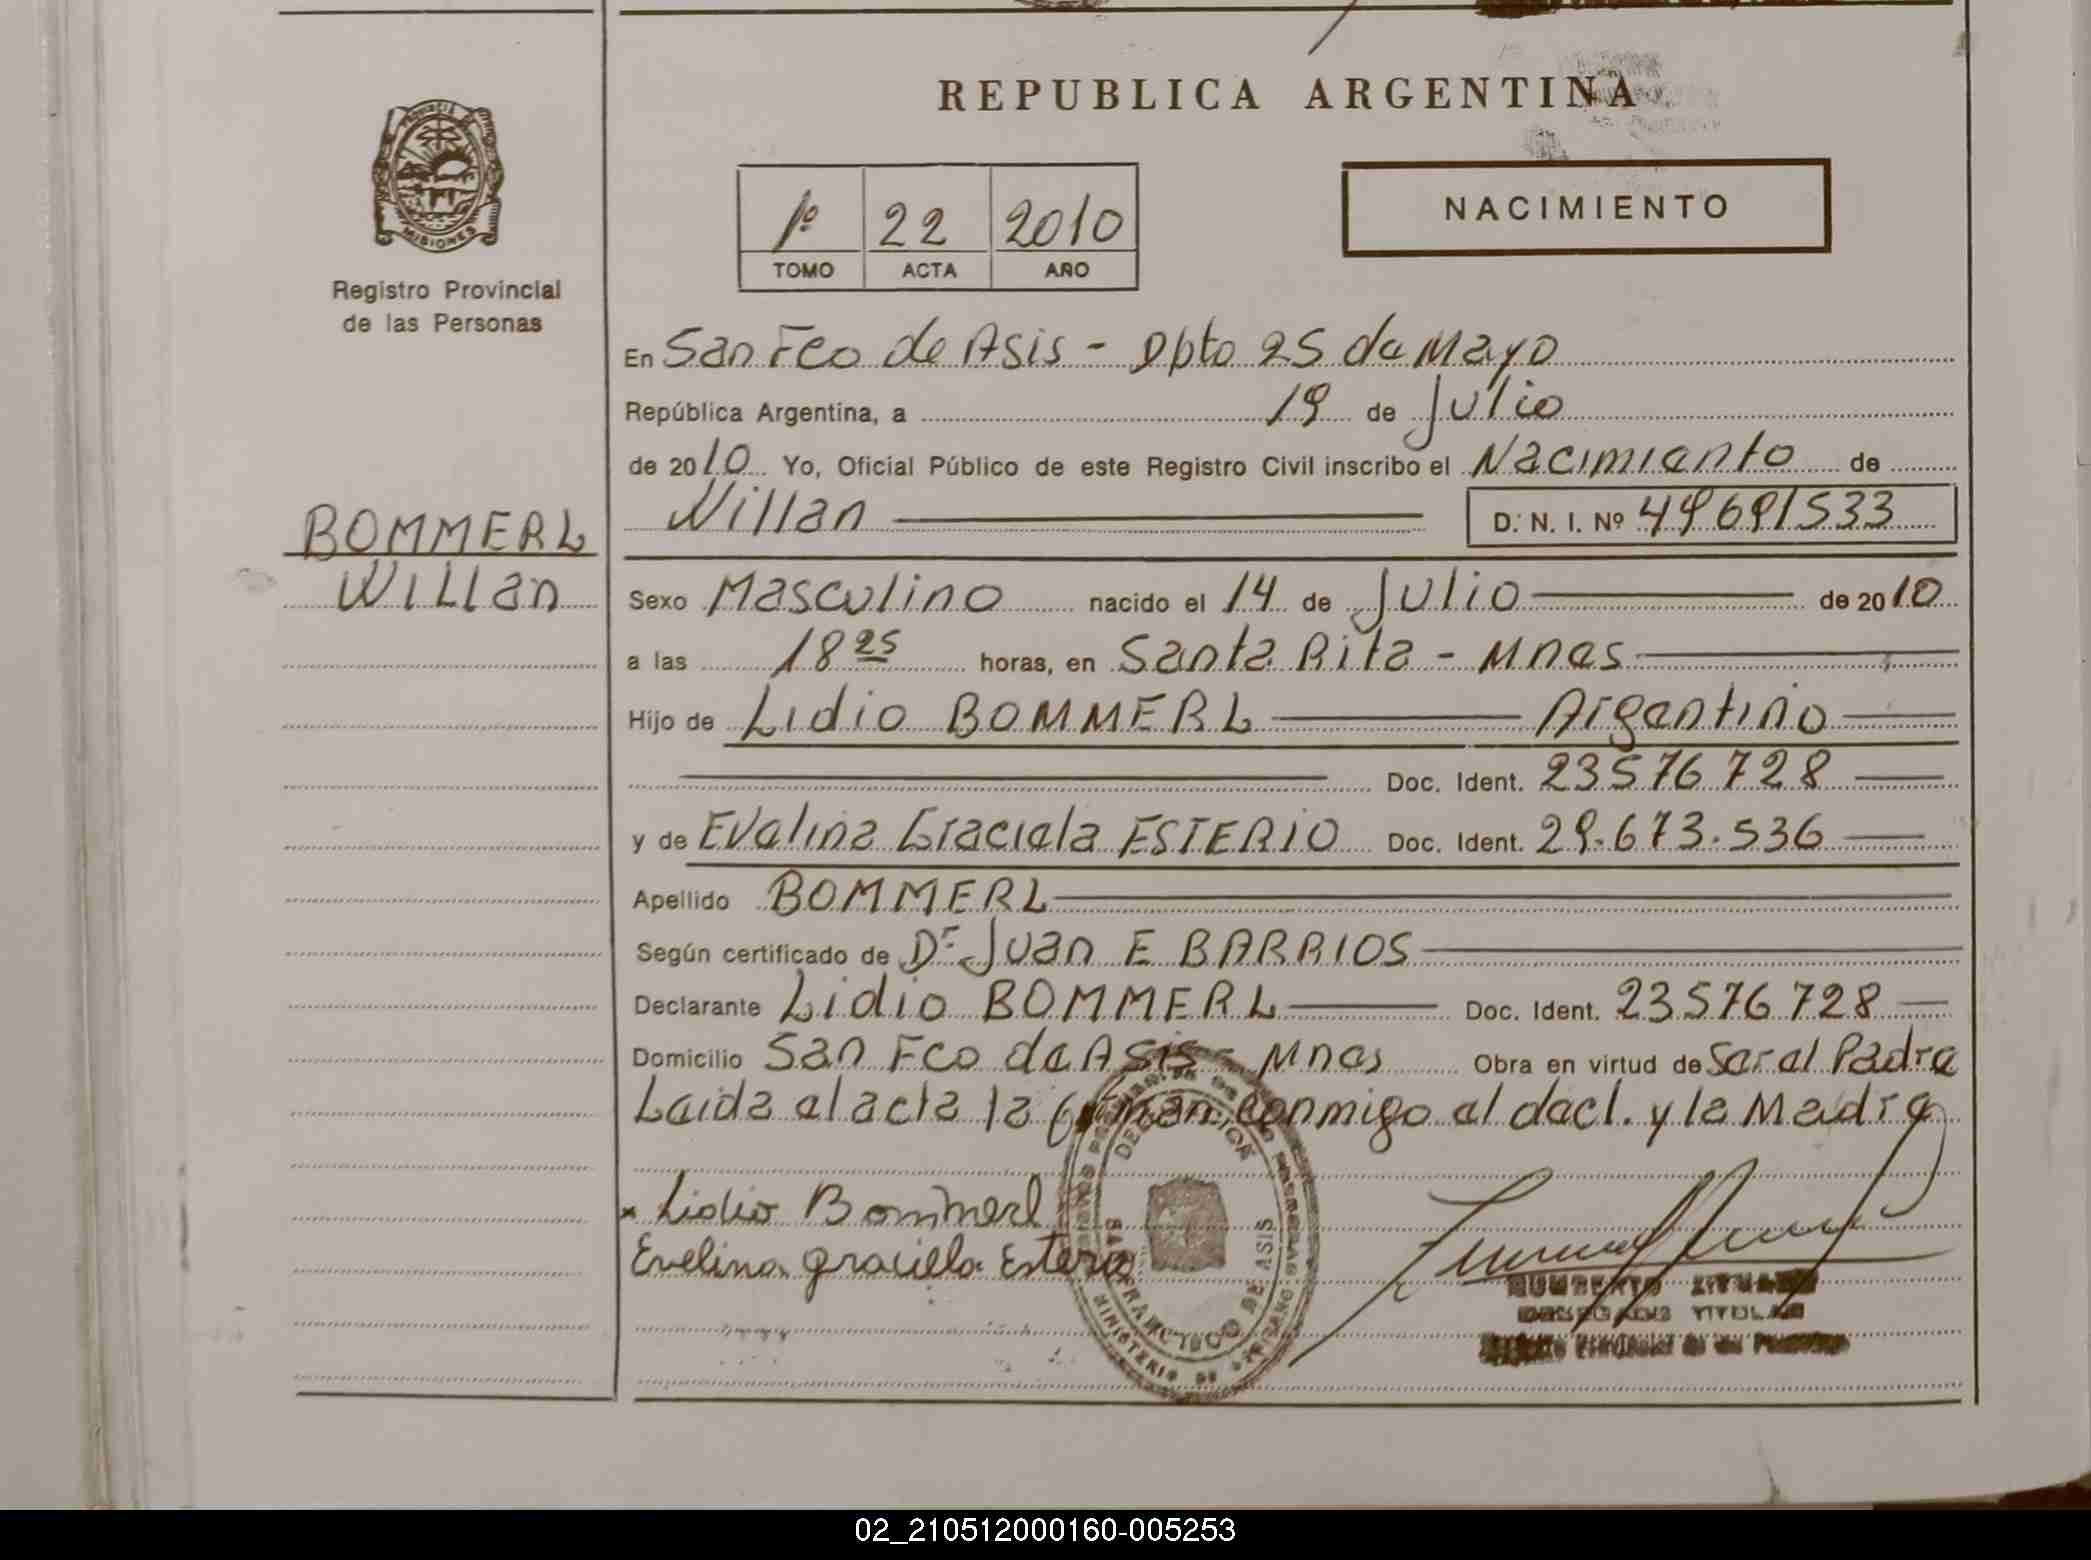 REPUBLICA ARGENTINA
MISIONES
Registro Provincial
de las Personas
1º 22 2010
TOMO ACTA AÑO
NACIMIENTO
En San Fco de Asis - Dpto 25 de Mayo
República Argentina, a 19 de Julio
de 2010 Yo, Oficial Público de este Registro Civil inscribo el Nacimiento de
Willan D. N. I. Nº 49691533
BOMMERL
Willan
Sexo Masculino nacido el 14 de Julio de 2010
a las 18 25 horas, en Santa Rita - Mnes
Hijo de Lidio BOMMERL Argentino
Doc. Ident. 23576728
y de Evelina Graciela ESTERIO Doc. Ident. 29.673.536
Apellido BOMMERL
Según certificado de Dr Juan E BARRIOS
Declarante Lidio BOMMERL Doc. Ident. 23576728
Domicilio San Fco de Asis - Mnes Obra en virtud de Ser el Padre
Leida el acta la firman conmigo el decl. y la Madre
x Lidio Bommerl
Evelina graciela Esterio
SAN FRANCISCO DE ASIS
MINISTERIO DE
HUMBERTO
DELEGADO TITULAR
Provincial de las Personas
02_210512000160-005253